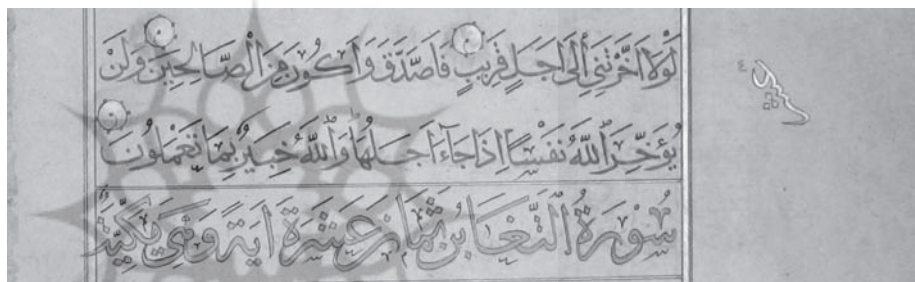 لَوْلَا اَخَّرْتَنِي اِلَى اَجَلٍ قَرِيبٍ فَاَصَّدَّقَ وَاَكُونَ مِنَ الصَّالِحِينَ وَلَنْ
يُؤَخِّرَ اللَّهُ نَفْسًا اِذَا جَاءَ اَجَلُهَا وَاللَّهُ خَبِيرٌ بِمَا تَعْمَلُونَ
سُورَةُ التَّغَابُنِ ثَمَان عَشْرَةَ اٰيَةً وَهِيَ مَكِّيَّةٌ